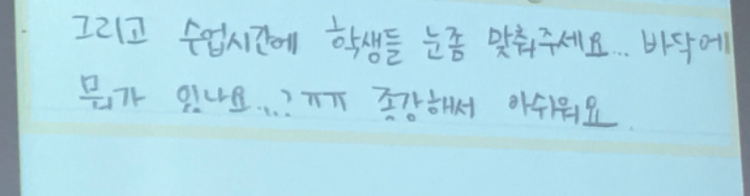 그리고 수업시간에 학생들 눈좀 맞춰주세요... 바닥에
뭐가 있나요...? ㅠㅠ 종강해서 아쉬워요.